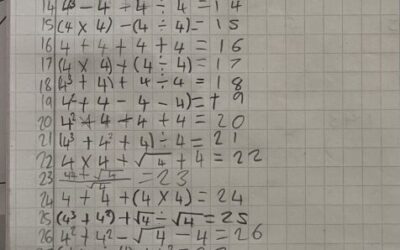 14 4³ - 4 ÷ 4 ÷ 4 = 14
15 (4 x 4) - (4 ÷ 4) = 15
16 4 + 4 + 4 + 4 = 16
17 (4 x 4) + (4 ÷ 4) = 17
18 (4³ + 4) + 4 ÷ 4 = 18
19 4 + 4 - 4 - 4) = + 9
20 4² + 4 + 4 + 4 = 20
21 (4³ + 4² + 4) ÷ 4 = 21
22 4 x 4 + √4 + 4 = 22
23 = 23
24 4 + 4 + (4 x 4) = 24
25 (4³ + 4²) + √4 ÷ √4 = 25
26 4² + 4² - √4 - 4 = 26